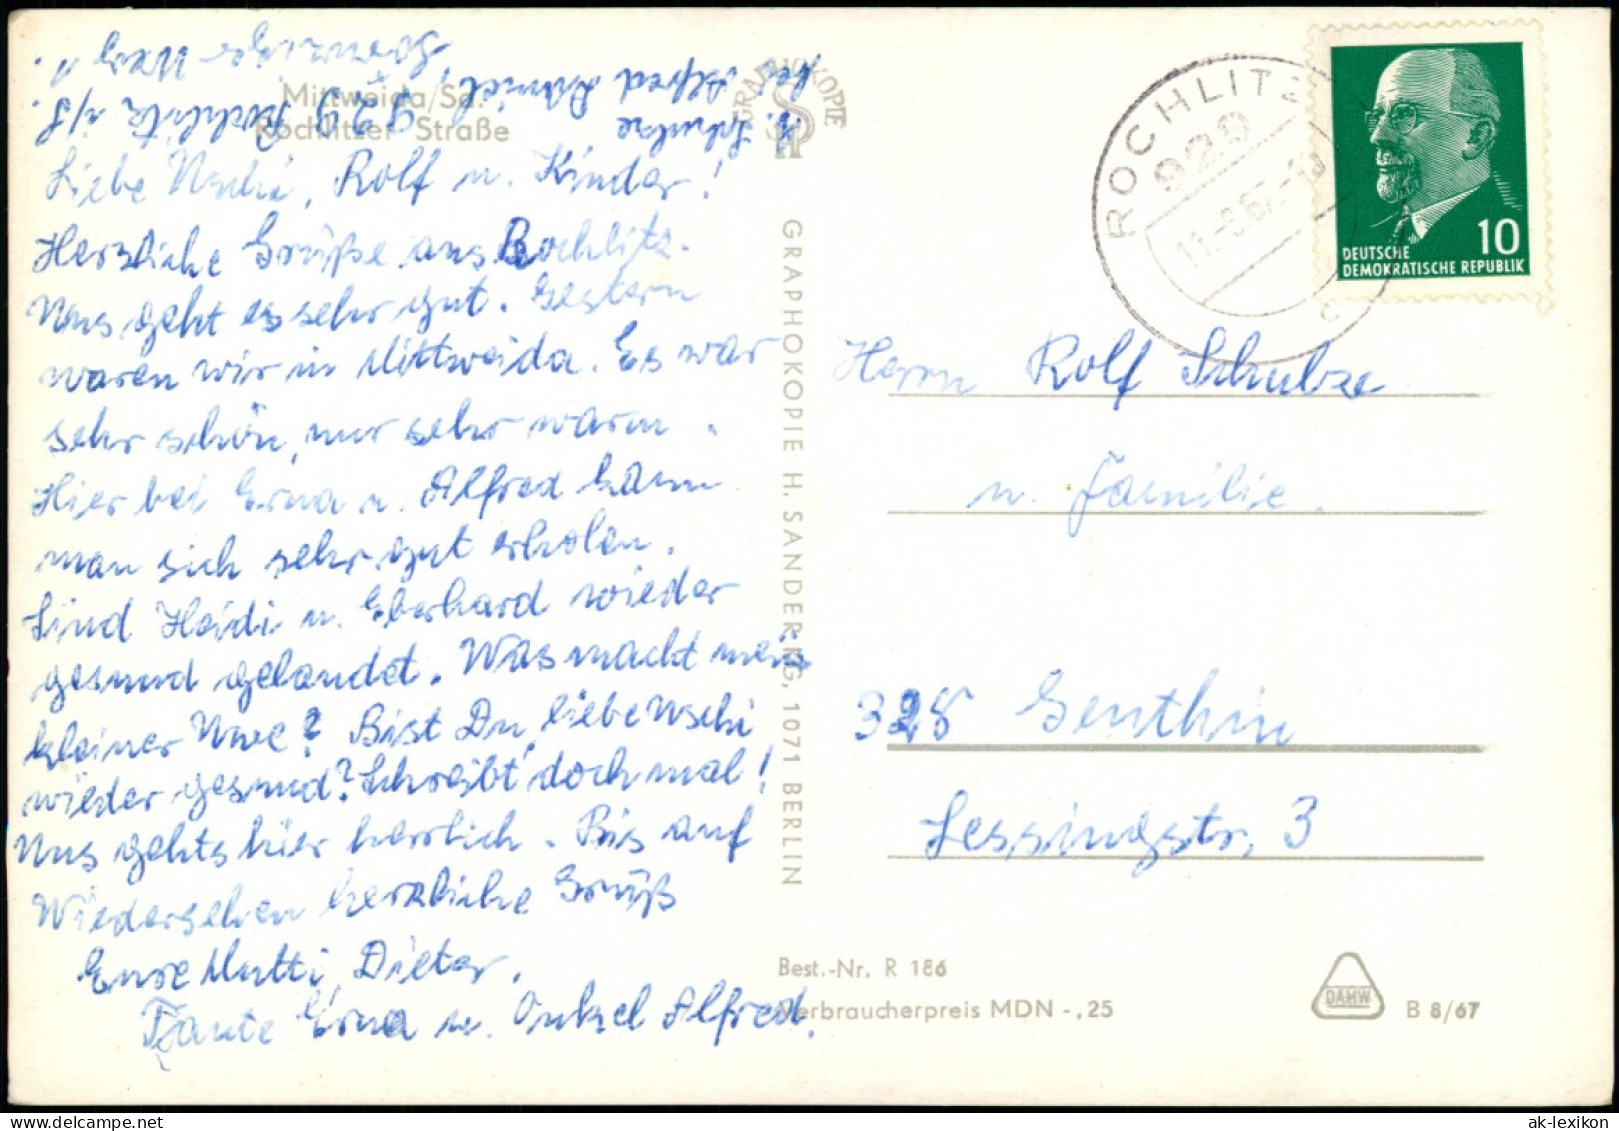 Mittweida/Sa.
Rochlitzer Straße
H. Schulze
bei Alfred
929 Rochlitz i/S.
Liebe Uschi, Rolf u. Kinder!
Herzliche Grüße aus Rochlitz.
Uns geht es sehr gut. Gestern
waren wir in Mittweida. Es war
sehr schön, nur sehr warm.
Hier bei Erna u. Alfred kann
man sich sehr gut erholen.
Sind Heidi u. Eberhard wieder
gesund gelandet. Was macht mein
kleiner Uwe? Bist Du, liebe Uschi
wieder gesund? Schreibt doch mal!
Uns gehts hier herrlich. Bis auf
Wiedersehen herzliche Grüß
Eure Mutti, Dieter,
Tante Erna u. Onkel Alfred.
GRAPHOKOPIE
GRAPHOKOPIE H. SANDER KG, 1071 BERLIN
ROCHLITZ
929
11.-8.67.-
10
DEUTSCHE
DEMOKRATISCHE REPUBLIK
Herrn Rolf Schulze
u. Familie.
328 Genthin
Lessingstr. 3
Best.-Nr. R 186
Verbraucherpreis MDN -,25
DAMW
B 8/67
ak-lexikon.de